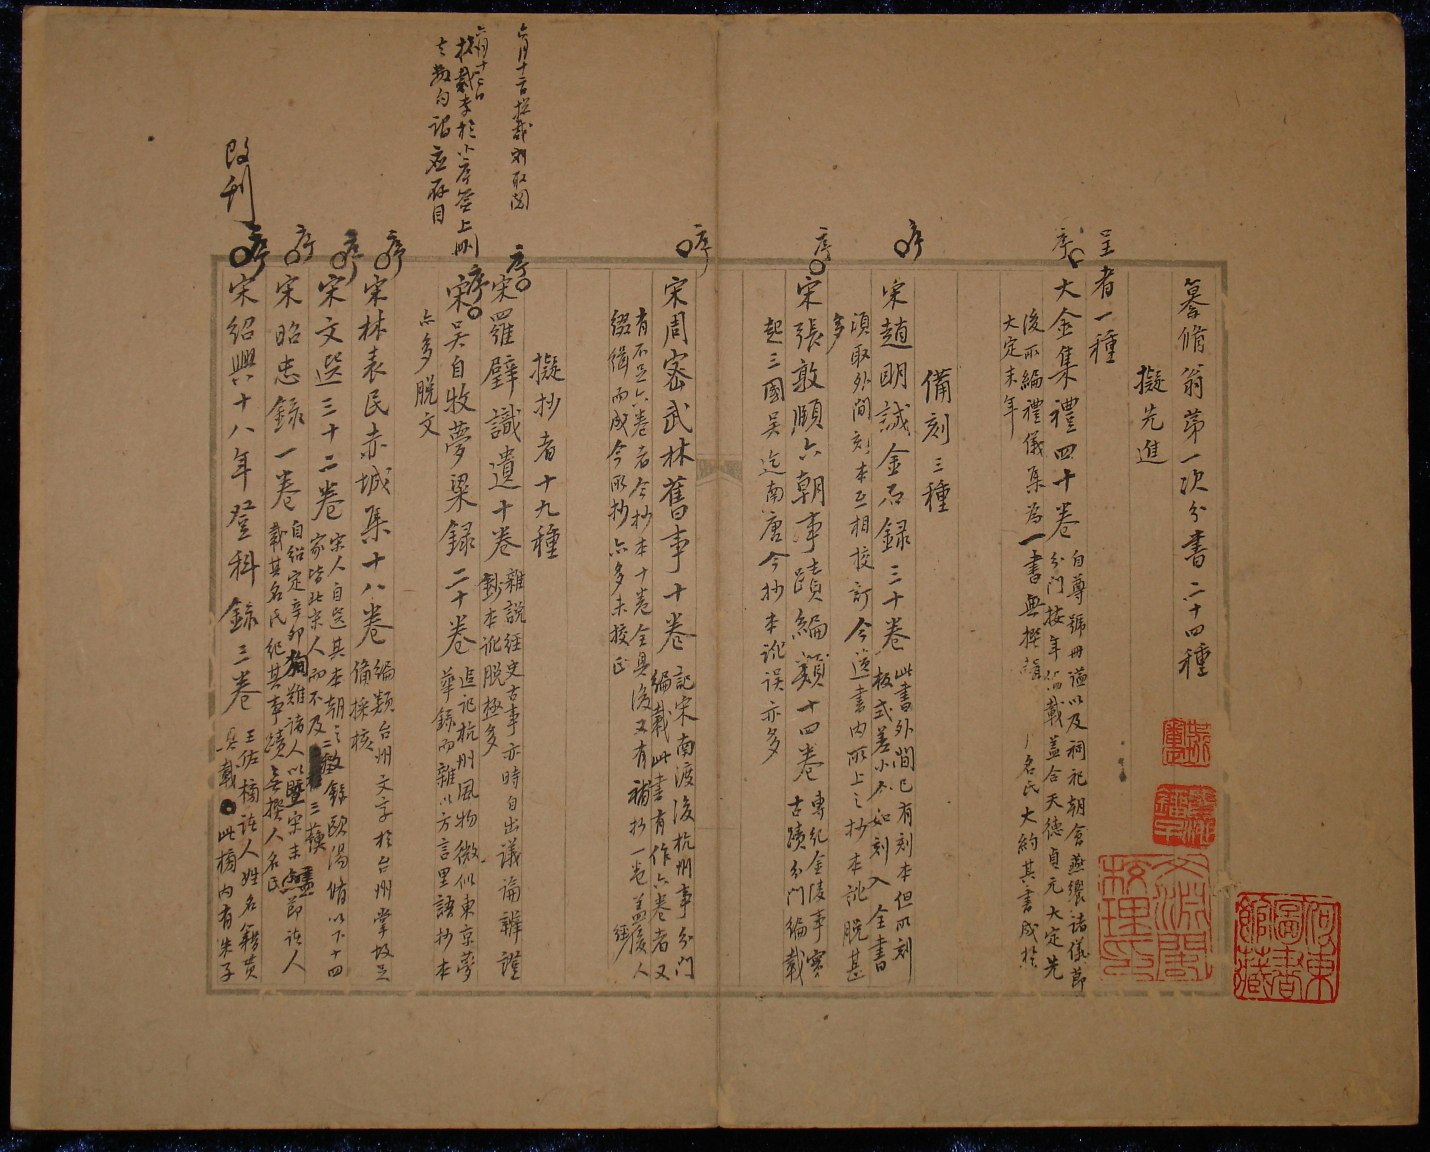 纂脩翁第一次分書二十四種
擬先進
呈者一種
序
大金集禮四十卷
自尊號冊謚以及祠祀朝會燕饗諸儀節
分門按年
載蓋合天德貞元大定先
後所編禮儀集為一書無撰
名氏大約其書成於
大定末年
備刻三種
序
宋趙明誠金石錄三十卷
此書外間已有刻本但所刻
板式差小不如刻入全書
須取外間刻本互相校訂今
書內所上之抄本訛脫甚
多
序
宋張敦頤六朝事蹟編類十四卷
專紀金陵事實
古蹟分門編載
起三國吳迄南唐今抄本訛誤亦多
序
宋周密武林舊事十卷
記宋南渡後杭州事分門
編載此書有作六卷者又
有不足六卷者今抄本十卷全具後又有補抄一卷蓋後人
綴緝而成今所抄亦多未校正
擬抄者十九種
六月十二日
序
宋羅璧識遺十卷
雜說經史古事亦時自出議論辨證
鈔本訛脫極多
序
宋吳自牧夢粱錄二十卷
追記杭州風物微似東京夢
華錄而雜以方言里語抄本
亦多脫文
應存目
序
宋林表民赤城集十八卷
編類台州文字於台州掌故足
備採核
序
宋文選三十二卷
宋人自選其本朝之
歐陽脩以下十四
家皆北宋人而不及三蘇
序
宋昭忠錄一卷
自紹定辛卯
難諸人以暨宋末
節諸人
載其名氏紀其事蹟無撰人名氏
改刊
序
宋紹興十八年登科錄三卷
王佐榜諸人姓名籍貫
具載此榜內有朱子
文淵閣
校理印
何東
圖書
館藏